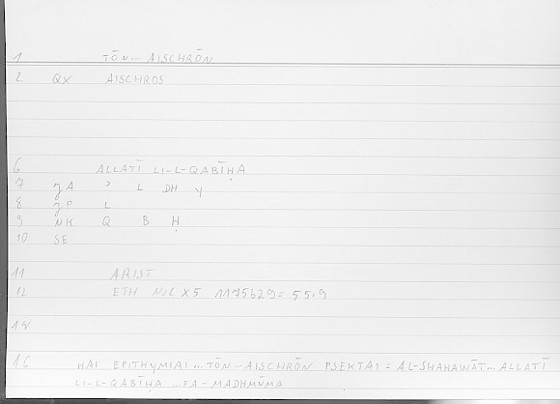 1 TŌN — AISCHRŌN
2 QX AISCHROS
6 ALLATĪ LI-L-QABĪḤA
7 JA ʾ L DH Y
8 JP L
9 NK Q B Ḥ
10 SE
11 ARIST
12 ETH NIC X5 1175B29 = 55.9
14
16 HAI EPITHYMIAI ... TŌN - AISCHRŌN PSEKTAI = AL-SHAHAWĀT ... ALLATĪ
LI-L-QABĪḤA ... FA-MADHMŪMA